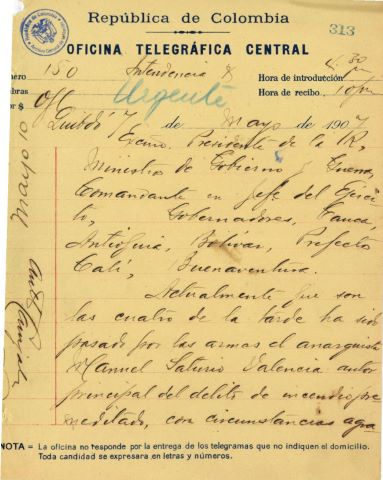 República de Colombia
313
OFICINA TELEGRÁFICA CENTRAL
Número 150 Intendencia 8 Hora de introducción 4.30 pm
Palabras Urgente Hora de recibo 10 pm
Valor $ Off
Quibdó 7 de mayo de 1907
Excmo. Presidente de la R,
Ministros de Gobierno y Guerra,
Comandante en Jefe del Ejérci-
to, Gobernadores, Cauca,
Antioquia, Bolívar, Prefectos
Cali, Buenaventura.
Actualmente que son
las cuatro de la tarde ha sido
pasado por las armas el anarquista
Manuel Saturio Valencia autor
principal del delito de incendio pre
meditado, con circunstancias agra
NOTA = La oficina no responde por la entrega de los telegramas que no indiquen el domicilio.
Toda candidad se expresara en letras y números.